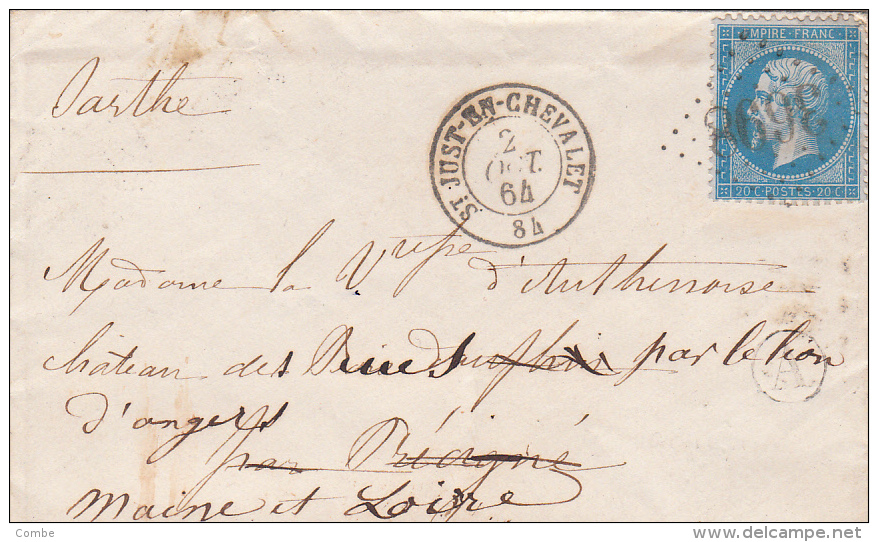 EMPIRE · FRANC ·
20 C · POSTES · 20 C
ST JUST-EN-CHEVALET
2
OCT.
64
84
Sarthe
Madame la Vtesse d'Anthenaise
château des Rues par le Lion
d'angers
par Précigné
Maine et Loire
A
Combe
www.delcampe.net